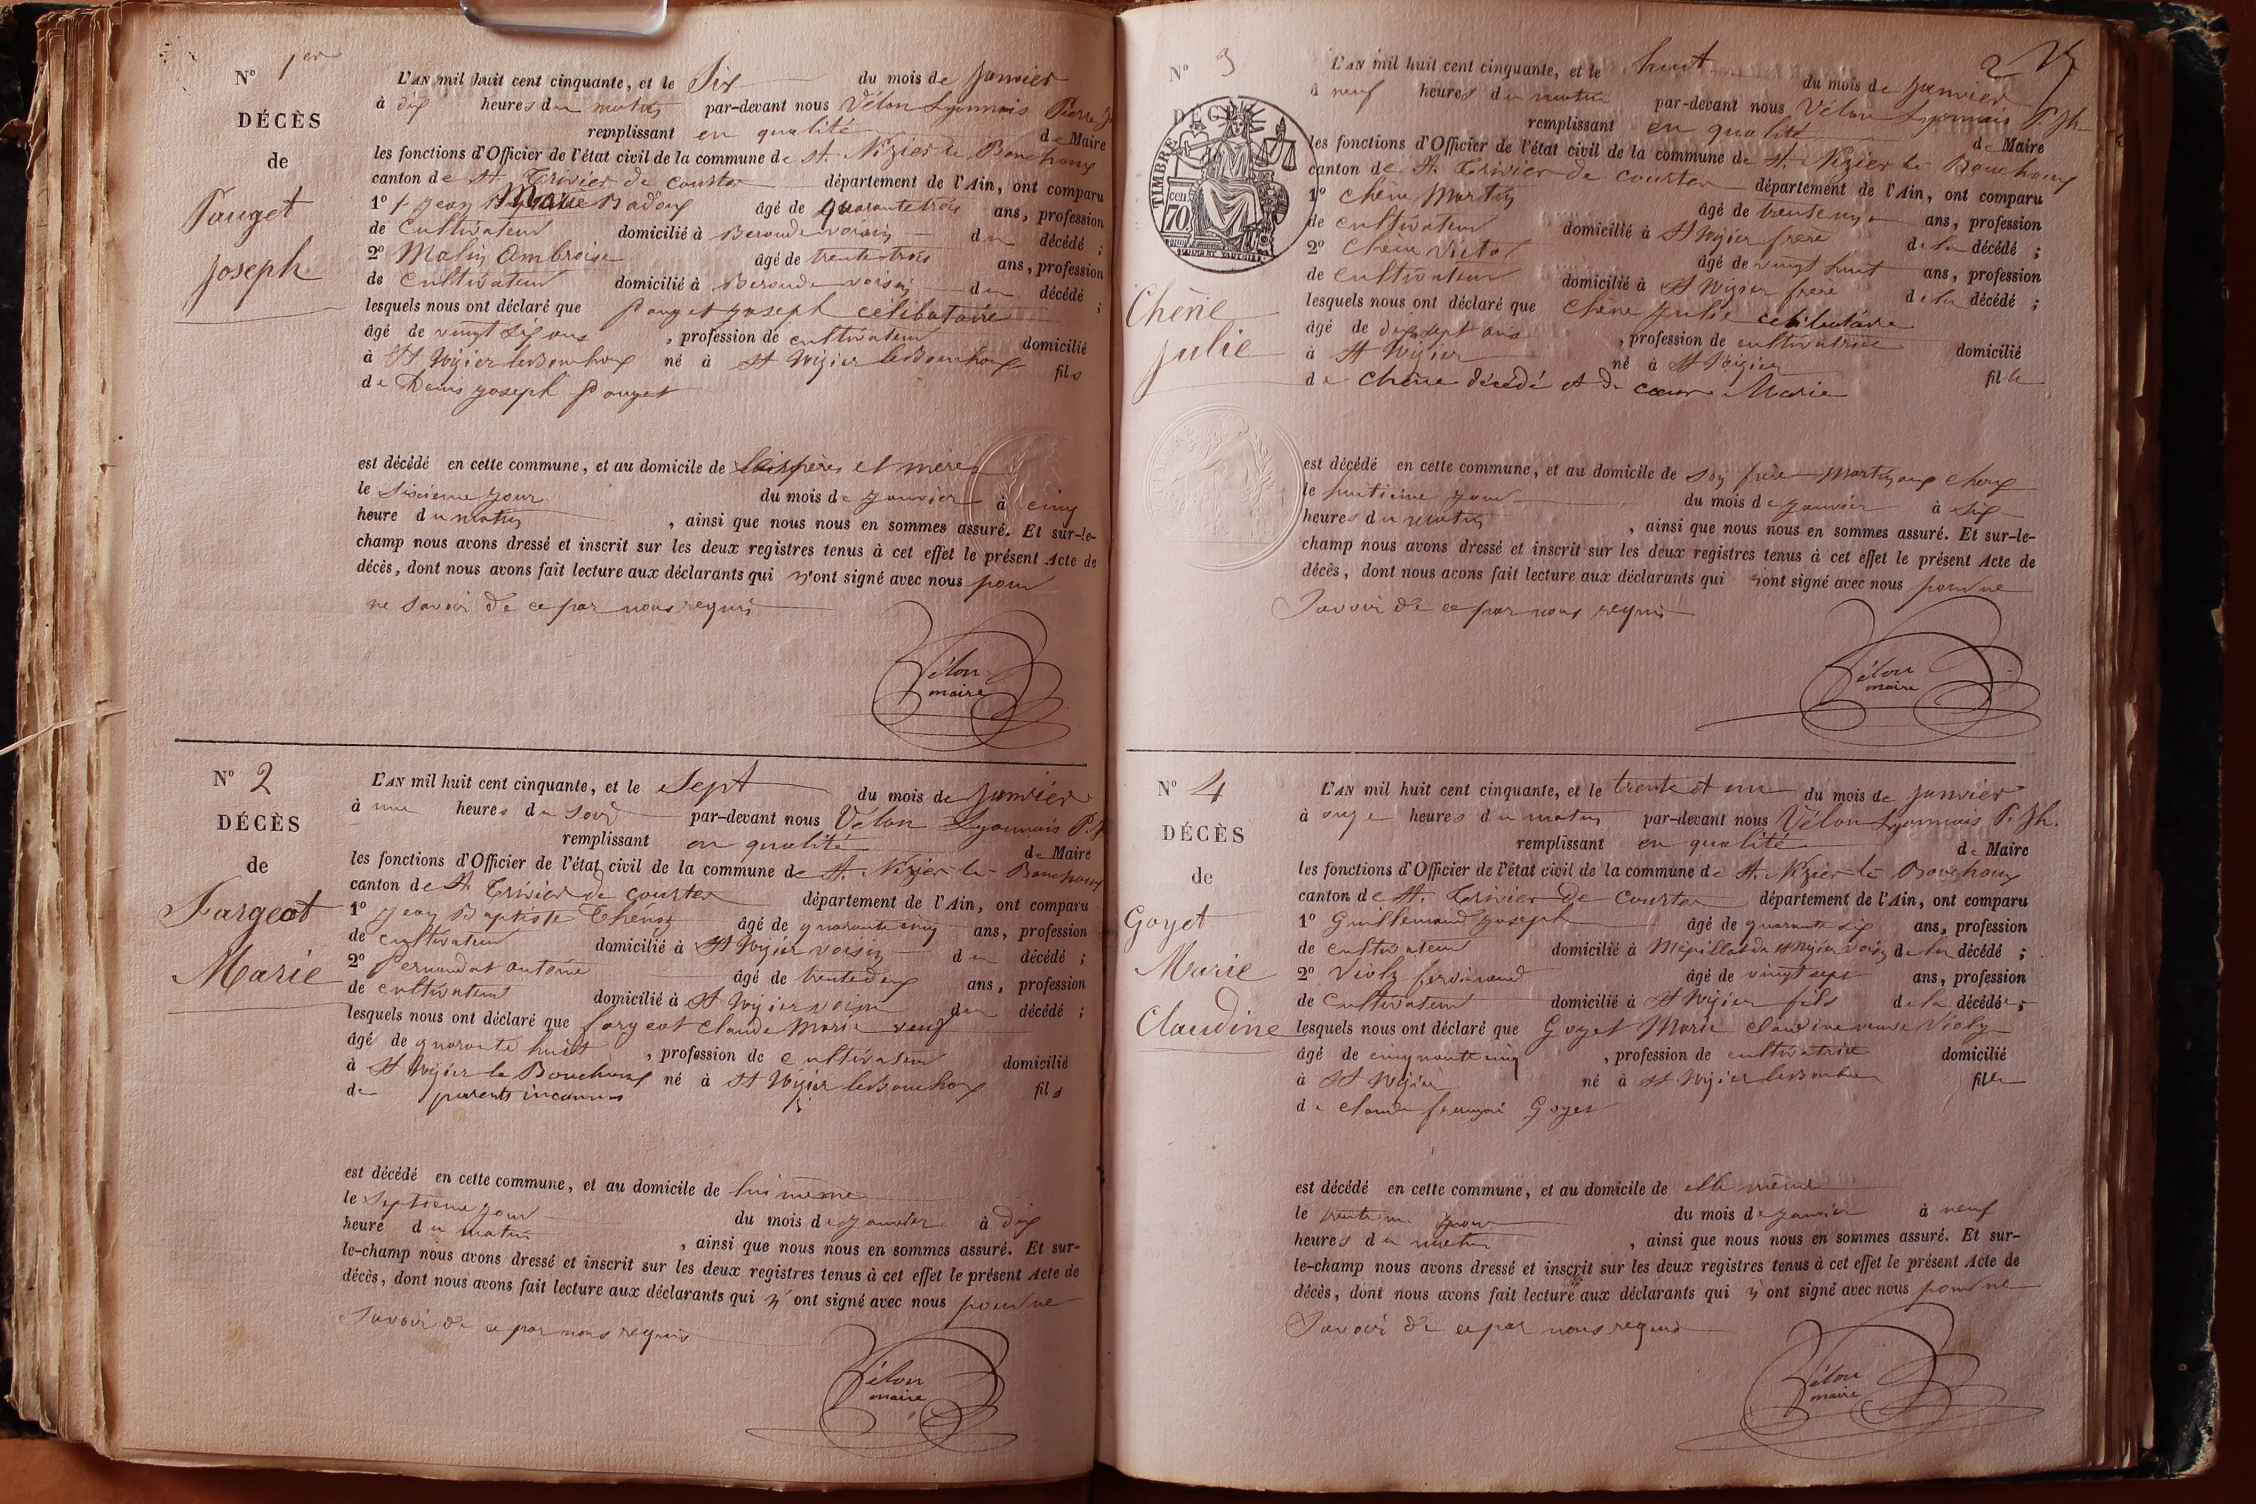 N° 1er
DÉCÈS
de
Pauget
Joseph
L'AN mil huit cent cinquante, et le Six du mois de Janvier
à dix heures du matin par-devant nous Vélon Lyonnais Pierre
remplissant en qualité de Maire
les fonctions d'Officier de l'état civil de la commune de St. Nizier le Bouchoux
canton de St. Trivier de Courtes département de l'Ain, ont comparu
1° Jean Marie Badoux âgé de quarante trois ans, profession
de Cultivateur domicilié à voisin du décédé ;
2° Malin Ambroise âgé de trente trois ans, profession
de Cultivateur domicilié à voisin du décédé ;
lesquels nous ont déclaré que Pauget joseph célibataire
âgé de vingt six ans , profession de cultivateur domicilié
à St Nizier le Bouchoux né à St Nizier le Bouchoux fils
de Denis joseph Pauget
est décédé en cette commune, et au domicile de pères et mères
le Sixième jour du mois de janvier à cinq
heure du matin , ainsi que nous nous en sommes assuré. Et sur-le-
champ nous avons dressé et inscrit sur les deux registres tenus à cet effet le présent Acte de
décès, dont nous avons fait lecture aux déclarants qui n'ont signé avec nous pour
ne savoir de ce par nous requis
Vélon
maire
N° 2
DÉCÈS
de
Fargeot
Marie
L'AN mil huit cent cinquante, et le Sept du mois de Janvier
à une heures du soir par-devant nous Vélon Lyonnais P.
remplissant en qualité de Maire
les fonctions d'Officier de l'état civil de la commune de St. Nizier le Bouchoux
canton de St. Trivier de Courtes département de l'Ain, ont comparu
1° Jean Baptiste Thenoz âgé de quarante cinq ans, profession
de cultivateur domicilié à St Nizier voisin du décédé ;
2° Pernodat antoine âgé de trente deux ans, profession
de cultivateur domicilié à St Nizier voisin du décédé ;
lesquels nous ont déclaré que fargeot Claude Marie veuf
âgé de quarante huit , profession de cultivateur domicilié
à St Nizier le Bouchoux né à St Nizier le Bouchoux fils
de parents inconnus
est décédé en cette commune, et au domicile de lui même
le Septième jour du mois de janvier à dix
heure du matin , ainsi que nous nous en sommes assuré. Et sur-
le-champ nous avons dressé et inscrit sur les deux registres tenus à cet effet le présent Acte de
décès, dont nous avons fait lecture aux déclarants qui n'ont signé avec nous pour ne
Savoir de ce par nous requis
Vélon
maire
2
N° 3
DÉCÈS
TIMBRE
70
cen
Chêne
Julie
L'AN mil huit cent cinquante, et le huit du mois de Janvier
à neuf heures du matin par-devant nous Vélon Lyonnais P. Jh
remplissant en qualité de Maire
les fonctions d'Officier de l'état civil de la commune de St. Nizier le Bouchoux
canton de St. Trivier de Courtes département de l'Ain, ont comparu
1° Chêne Martin âgé de trente un ans, profession
de cultivateur domicilié à St Nizier frère de la décédé ;
2° Chêne Victor âgé de vingt huit ans, profession
de cultivateur domicilié à St Nizier frère de la décédé ;
lesquels nous ont déclaré que Chêne Julie célibataire
âgé de dix sept ans , profession de cultivatrice domicilié
à St Nizier né à St Nizier fille
de Chêne décédé et de coeur Marie
est décédé en cette commune, et au domicile de son frère Martin aux
le huitième jour du mois de janvier à six
heures du matin , ainsi que nous nous en sommes assuré. Et sur-le-
champ nous avons dressé et inscrit sur les deux registres tenus à cet effet le présent Acte de
décès, dont nous avons fait lecture aux déclarants qui n'ont signé avec nous pour ne
Savoir de ce par nous requis
Vélon
maire
N° 4
DÉCÈS
de
Goyet
Marie
Claudine
L'AN mil huit cent cinquante, et le trente et un du mois de Janvier
à onze heures du matin par-devant nous Vélon Lyonnais P. Jh.
remplissant en qualité de Maire
les fonctions d'Officier de l'état civil de la commune de St. Nizier le Bouchoux
canton de St. Trivier de Courtes département de l'Ain, ont comparu
1° Guillemaud Joseph âgé de quarante six ans, profession
de cultivateur domicilié à St Nizier voisin de la décédé ;
2° Violy ferdinand âgé de vingt sept ans, profession
de Cultivateur domicilié à St Nizier fils de la décédée ;
lesquels nous ont déclaré que Goyet Marie Claudine veuve Violy
âgé de cinquante cinq , profession de cultivatrice domicilié
à St Nizier né à St Nizier le Bouchoux fille
de Claude françois Goyet
est décédé en cette commune, et au domicile de elle même
le trente un jour du mois de janvier à neuf
heures du matin , ainsi que nous nous en sommes assuré. Et sur-
le-champ nous avons dressé et inscrit sur les deux registres tenus à cet effet le présent Acte de
décès, dont nous avons fait lecture aux déclarants qui n'ont signé avec nous pour ne
Savoir de ce par nous requis
Vélon
maire